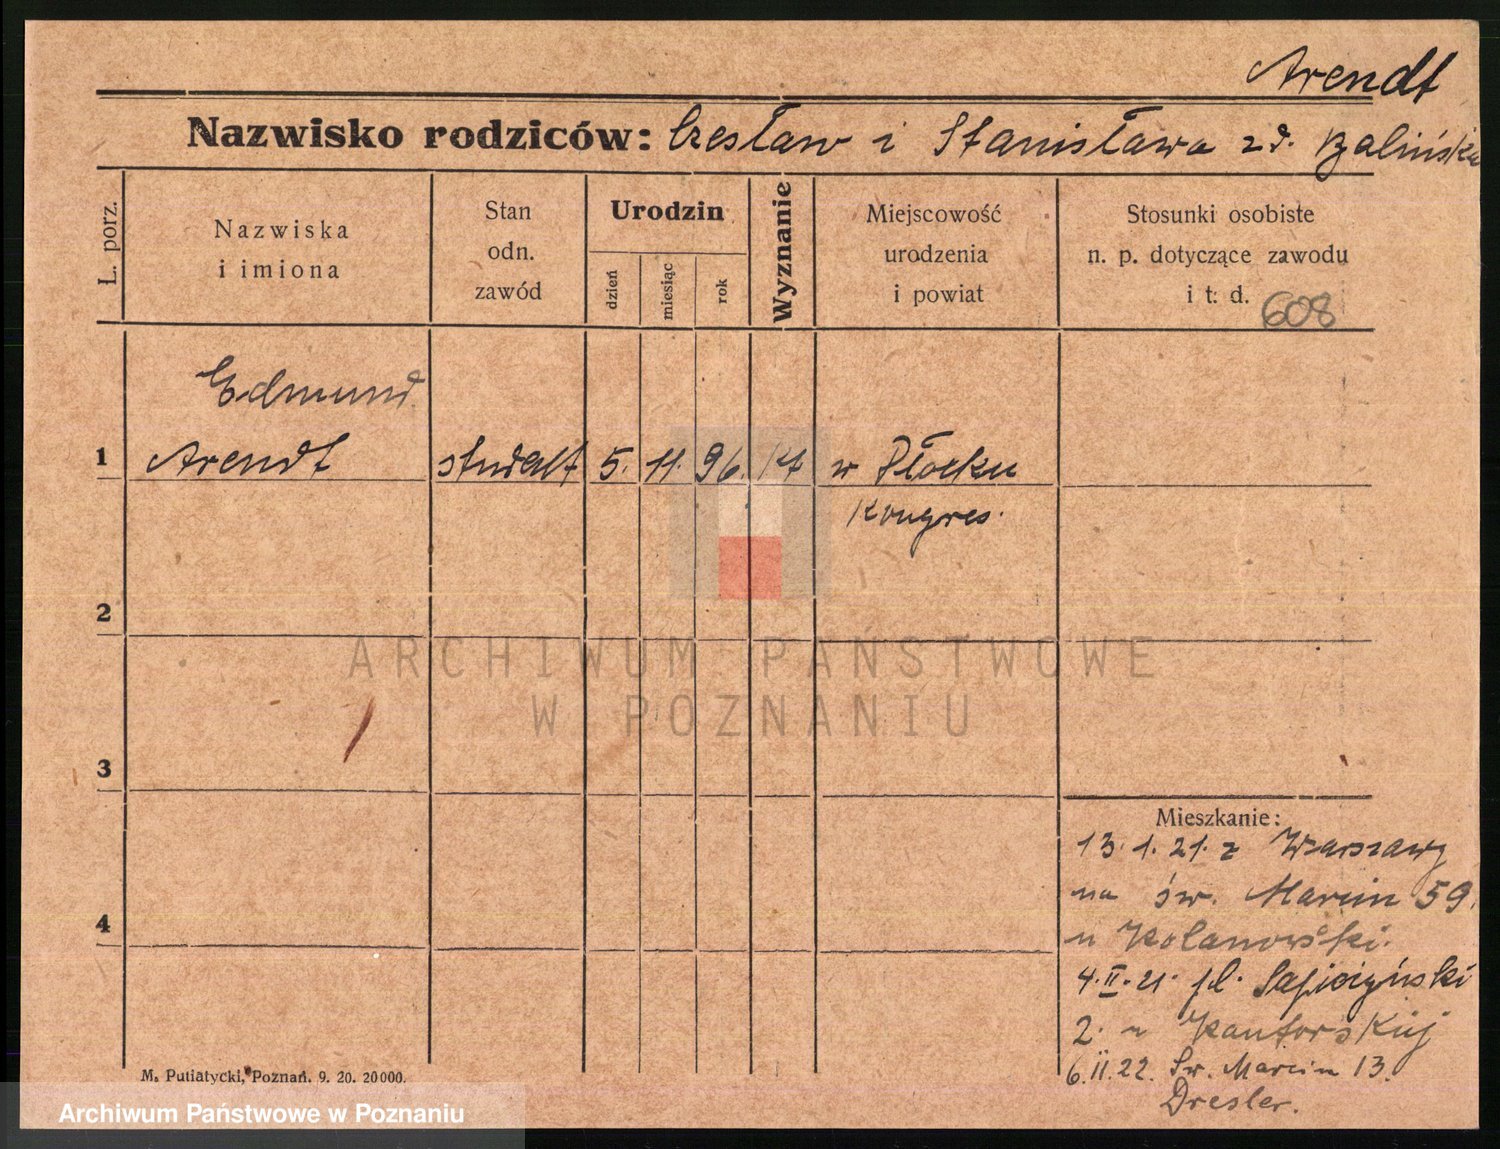 Arendt
Nazwisko rodziców: Czesław i Stanisława z d. Balińska
L. porz.
Nazwiska
i imiona
Stan
odn.
zawód
Urodzin
dzień
miesiąc
rok
Wyznanie
Miejscowość
urodzenia
i powiat
Stosunki osobiste
n. p. dotyczące zawodu
i t. d. 608
Edmund
1 Arendt student 5. 11. 96. kt w Płocku
Kongres.
2
ARCHIWUM PAŃSTWOWE
W POZNANIU
3
Mieszkanie:
13.1.21. z Warszawy
na św. Marcin 59.
u Kolanowski.
4
4.II.21. pl. Sapieżyński
2. u Kantorskiej
6.II.22. Św. Marcin 13.
Dresler.
M. Putiatycki, Poznań. 9. 20. 20000.
Archiwum Państwowe w Poznaniu